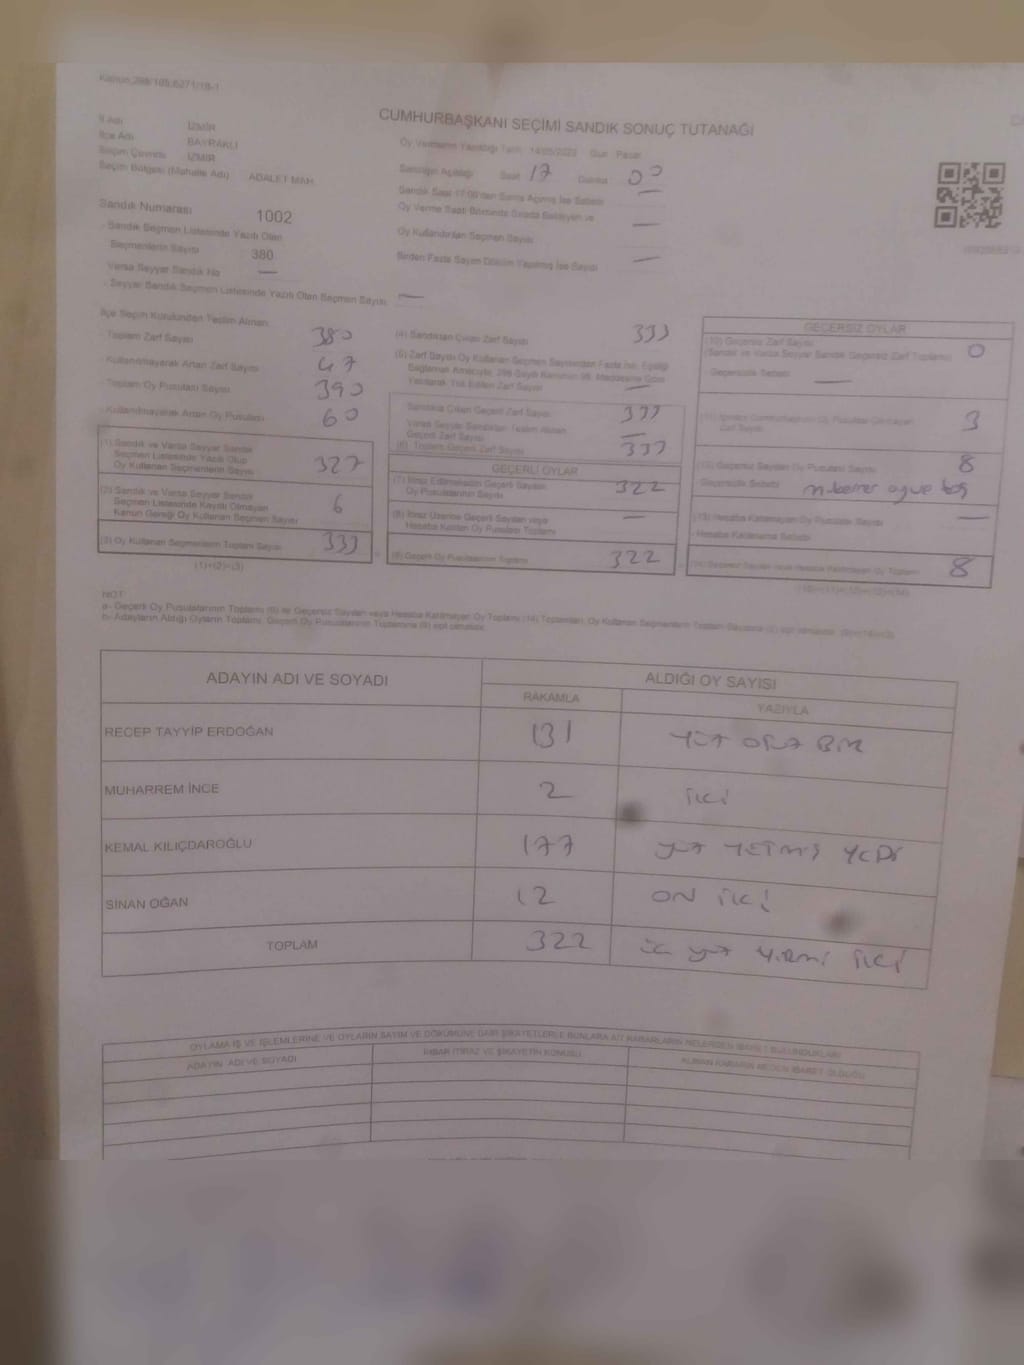 Kanun:298/105;6271/19-1
CUMHURBAŞKANI SEÇİMİ SANDIK SONUÇ TUTANAĞI
İl Adı İZMİR
İlçe Adı BAYRAKLI
Seçim Çevresi İZMİR
Seçim Bölgesi (Mahalle Adı) ADALET MAH.
Oy Vermenin Yapıldığı Tarih 14/05/2023 Gün Pazar
Sandığın Açıldığı Saat 17 Dakika 00
Oy Verme Saati Bitiminde Sırada Bekleyen ve
Oy Kullandırılan Seçmen Sayısı —
Birden Fazla Sayım Döküm Yapılmış İse Sayısı —
Sandık Numarası 1002
- Sandık Seçmen Listesinde Yazılı Olan
Seçmenlerin Sayısı 380
- Varsa Seyyar Sandık No —
- Seyyar Sandık Seçmen Listesinde Yazılı Olan Seçmen Sayısı —
İlçe Seçim Kurulundan Teslim Alınan
- Toplam Zarf Sayısı 380
- Kullanılmayarak Artan Zarf Sayısı 47
- Toplam Oy Pusulası Sayısı 390
- Kullanılmayarak Artan Oy Pusulası 60
(1) Sandık ve Varsa Seyyar Sandık
Seçmen Listesinde Yazılı Olup
Oy Kullanan Seçmenlerin Sayısı 327
(2) Sandık ve Varsa Seyyar Sandık
Seçmen Listesinde Kayıtlı Olmayan
Kanun Gereği Oy Kullanan Seçmen Sayısı 6
(3) Oy Kullanan Seçmenlerin Toplam Sayısı 333
(1)+(2)=(3)
(4) Sandıktan Çıkan Zarf Sayısı 333
(5) Zarf Sayısı Oy Kullanan Seçmen Sayısından Fazla İse, Eşitliği
Sağlamak Amacıyla, 298 Sayılı Kanunun 98. Maddesine Göre
Yakılarak Yok Edilen Zarf Sayısı —
Sandıkta Çıkan Geçerli Zarf Sayısı 333
Varsa Seyyar Sandıktan Teslim Alınan
Geçerli Zarf Sayısı —
(6) Toplam Geçerli Zarf Sayısı 333
GEÇERLİ OYLAR
(7) İtiraz Edilmeksizin Geçerli Sayılan
Oy Pusulalarının Sayısı 322
(8) İtiraz Üzerine Geçerli Sayılan veya
Hesaba Katılan Oy Pusulası Toplamı —
(9) Geçerli Oy Pusulalarının Toplamı 322
GEÇERSİZ OYLAR
(10) Geçersiz Zarf Sayısı
(Sandık ve Varsa Seyyar Sandık Geçersiz Zarf Toplamı) 0
Geçersizlik Sebebi —
Zarf Sayısı 3
(12) Geçersiz Sayılan Oy Pusulası Sayısı 8
Geçersizlik Sebebi
(13) Hesaba Katılmayan Oy Pusulası Sayısı —
- Hesaba Katılmama Sebebi
(14) Geçersiz Sayılan veya Hesaba Katılmayan Oy Toplamı 8
NOT:
a- Geçerli Oy Pusulalarının Toplamı (9) ile Geçersiz Sayılan veya Hesaba Katılmayan Oy Toplamı (14) Toplamları, Oy Kullanan Seçmenlerin Toplam Sayısına (3) eşit olmalıdır. (9)+(14)=(3)
b- Adayların Aldığı Oyların Toplamı, Geçerli Oy Pusulalarının Toplamına (9) eşit olmalıdır.
ADAYIN ADI VE SOYADI ALDIĞI OY SAYISI
RAKAMLA YAZIYLA
RECEP TAYYİP ERDOĞAN 131 YÜZ OTUZ BİR
MUHARREM İNCE 2 İKİ
KEMAL KILIÇDAROĞLU 177 YÜZ YETMİŞ YEDİ
SİNAN OĞAN 12 ON İKİ
TOPLAM 322 ÜÇ YÜZ YİRMİ İKİ
OYLAMA İŞ VE İŞLEMLERİNE VE OYLARIN SAYIM VE DÖKÜMÜNE DAİR ŞİKAYETLERLE BUNLARA AİT KARARLARIN NELERDEN İBARET BULUNDUKLARI
ADAYIN ADI VE SOYADI İHBAR İTİRAZ VE ŞİKAYETİN KONUSU ALINAN KARARIN NEDEN İBARET OLDUĞU